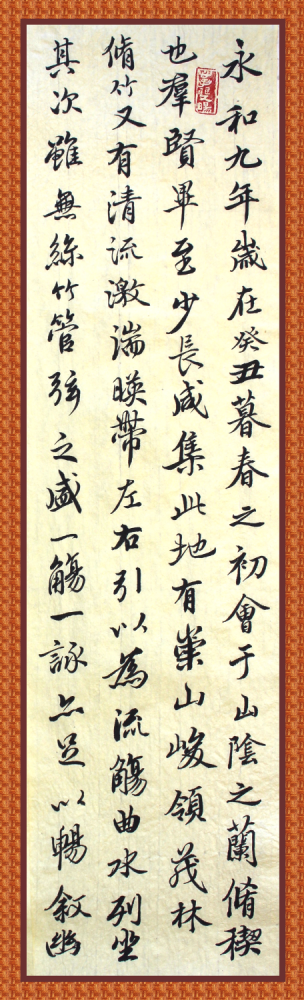 永和九年歲在癸丑暮春之初會于山陰之蘭脩稧
也羣賢畢至少長咸集此地有崇山峻領茂林
脩竹又有清流激湍暎帶左右引以為流觴曲水列坐
其次雖無絲竹管弦之盛一觴一詠亦足以暢敘幽